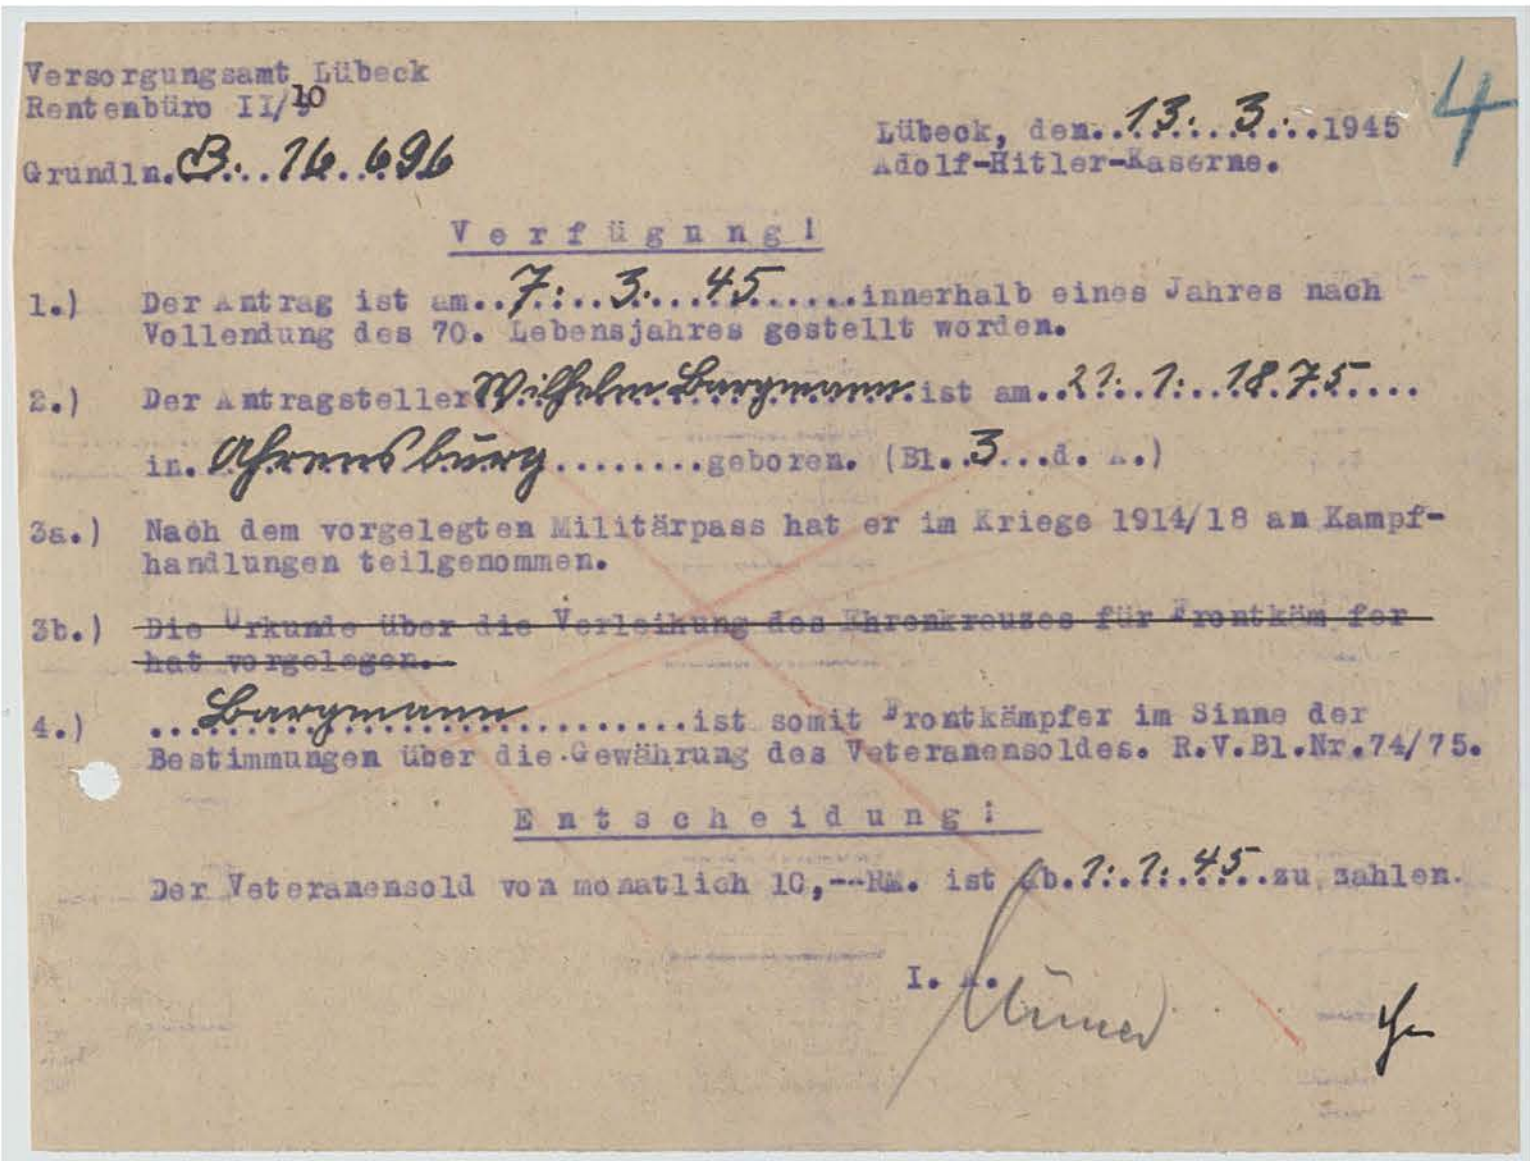 Versorgungsamt Lübeck
Rentenbüro II/10
Lübeck, den..13...3...1945
4
Adolf-Hitler-Kaserne.
Grundln. B... 16..696
Verfügung!
1.) Der Antrag ist am..7...3....45......innerhalb eines Jahres nach
Vollendung des 70. Lebensjahres gestellt worden.
2.) Der Antragsteller Wilhelm Bargmann.ist am..21...1...1875....
in. Ahrensburg ........geboren. (Bl..3...d. A.)
3a.) Nach dem vorgelegten Militärpass hat er im Kriege 1914/18 an Kampf-
handlungen teilgenommen.
3b.) Die Urkunde über die Verleihung des Ehrenkreuzes für Frontkämpfer
hat vorgelegen.
4.) ..Bargmann.........ist somit Frontkämpfer im Sinne der
Bestimmungen über die Gewährung des Veteranensoldes. R.V.Bl.Nr.74/75.
Entscheidung!
Der Veteranensold von monatlich 10,--RM. ist ab.1...1...45..zu zahlen.
I. A.